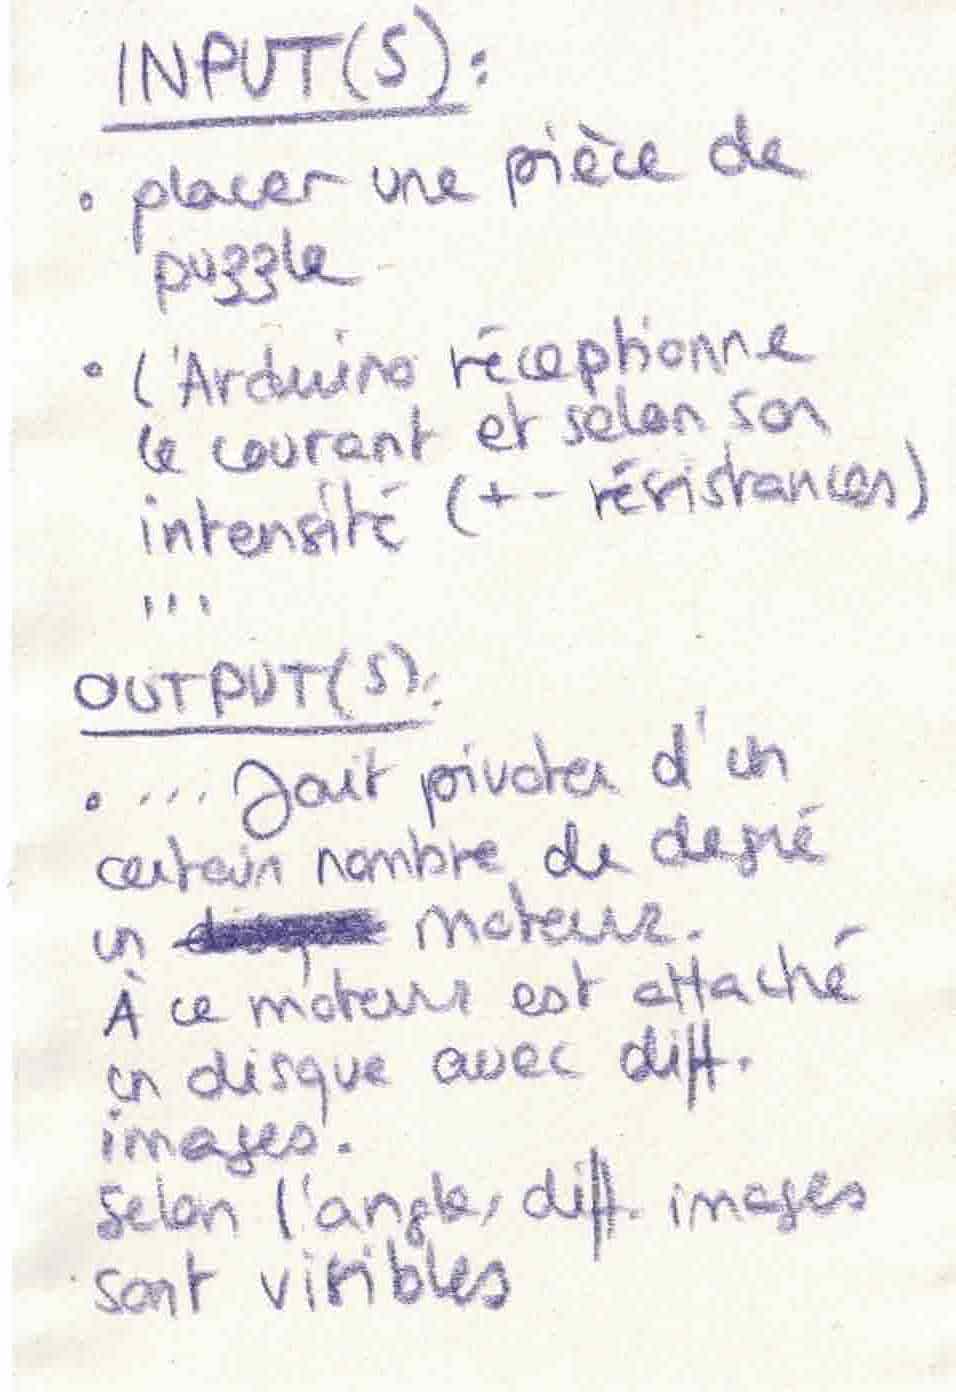 INPUT(S):
• placer une pièce de
puzzle
• l'Arduino réceptionne
le courant et selon son
intensité (+- résistances)
...
OUTPUT(S):
• ... fait pivoter d'un
certain nombre de degré
un moteur.
À ce moteur est attaché
un disque avec diff.
images.
Selon l'angle, diff. images
sont visibles